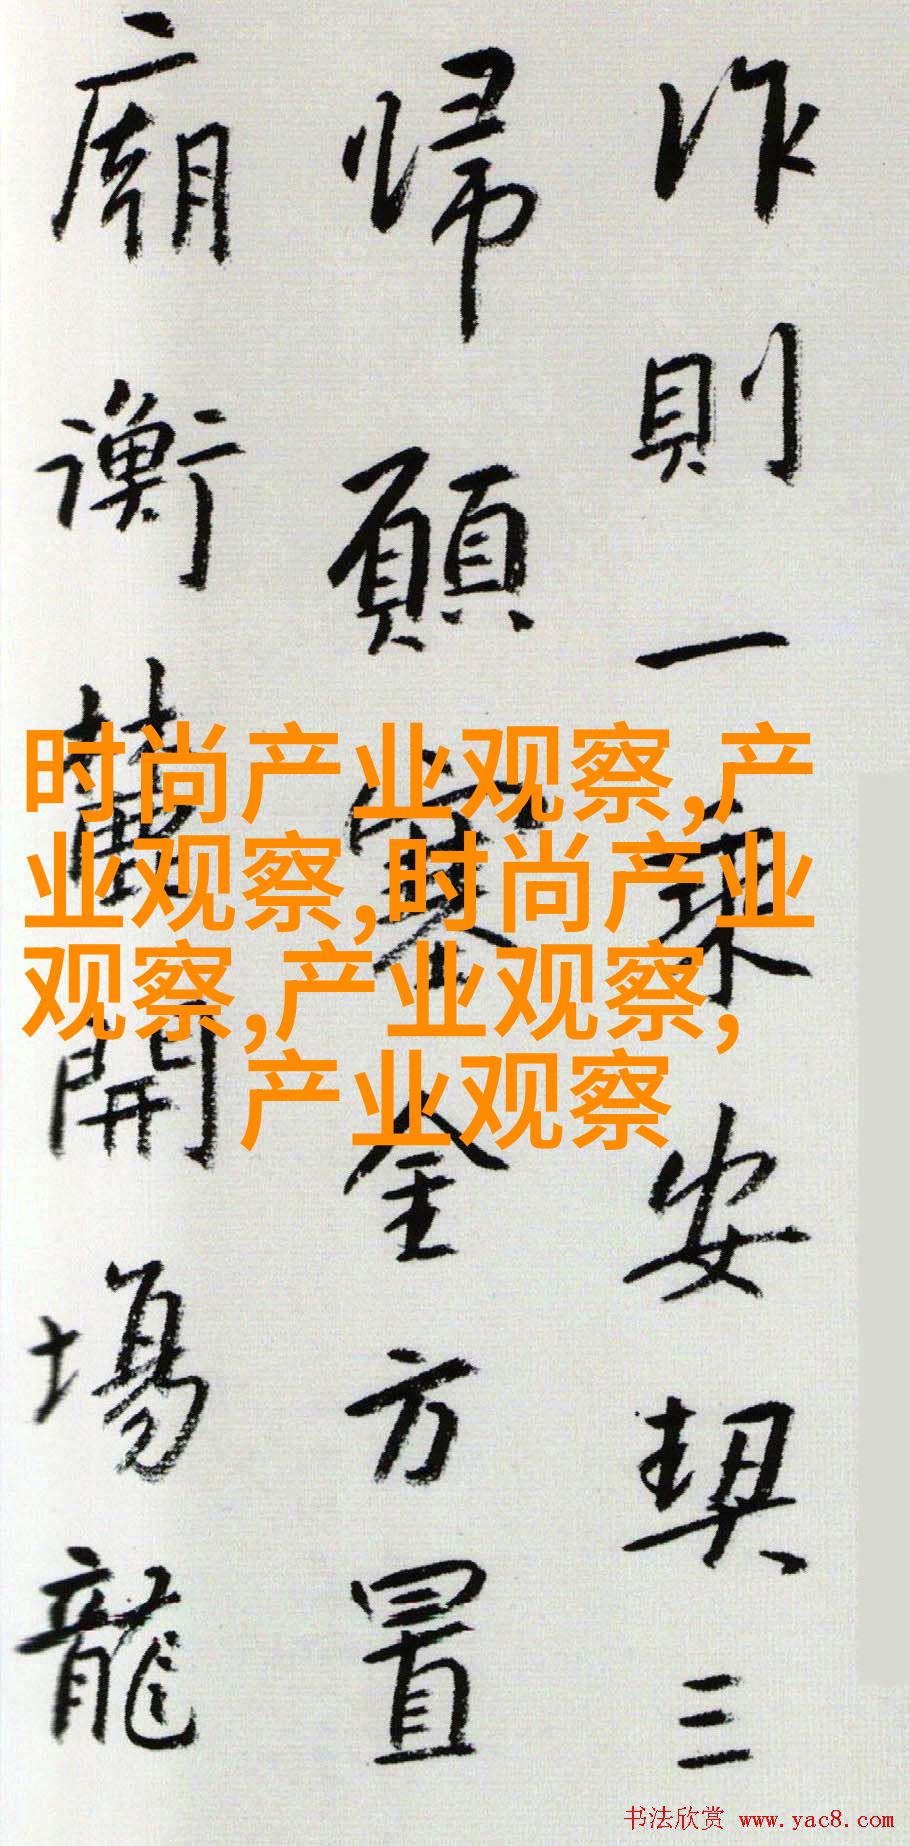 作則一安契三
帰願全方置
廟衡開場龍
时尚产业观察,产
业观察,时尚产业
观察,产业观察,
产业观察
书法欣赏 www.yac8.com